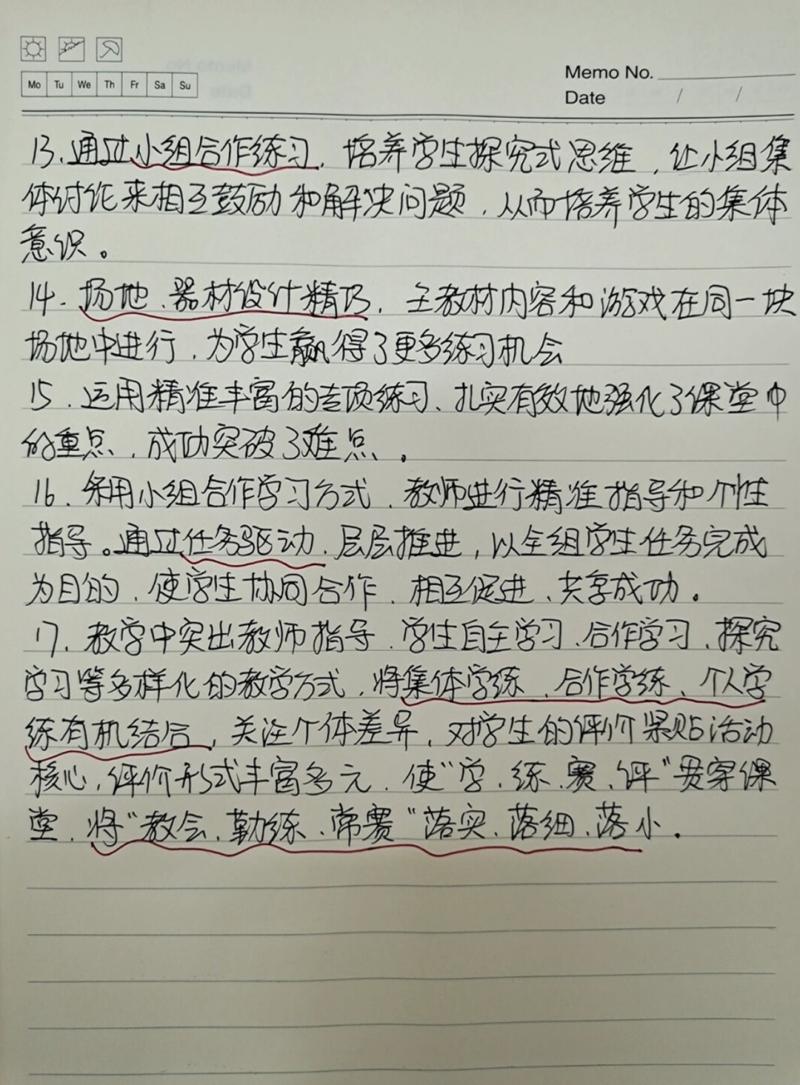 Mo Tu We Th Fr Sa Su
Memo No.
Date / /
13、通过小组合作练习，培养学生探究式思维，让小组集
体讨论来相互鼓励和解决问题，从而培养学生的集体
意识。
14、场地、器材设计精巧，主教材内容和游戏在同一块
场地中进行，为学生赢得了更多练习机会
15、运用精准丰富的专项练习、扎实有效地强化了课堂中
的重点，成功突破了难点。
16、利用小组合作学习方式，教师进行精准指导和个性
指导。通过任务驱动，层层推进，以全组学生任务完成
为目的，使学生协同合作、相互促进、共享成功。
17、教学中突出教师指导、学生自主学习、合作学习、探究
学习等多样化的教学方式，将集体学练、合作学练、个人学
练有机结合，关注个体差异，对学生的评价紧贴活动
核心，评价形式丰富多元，使“学、练、赛、评”贯穿课
堂，将“教会、勤练、常赛”落实、落细、落小。